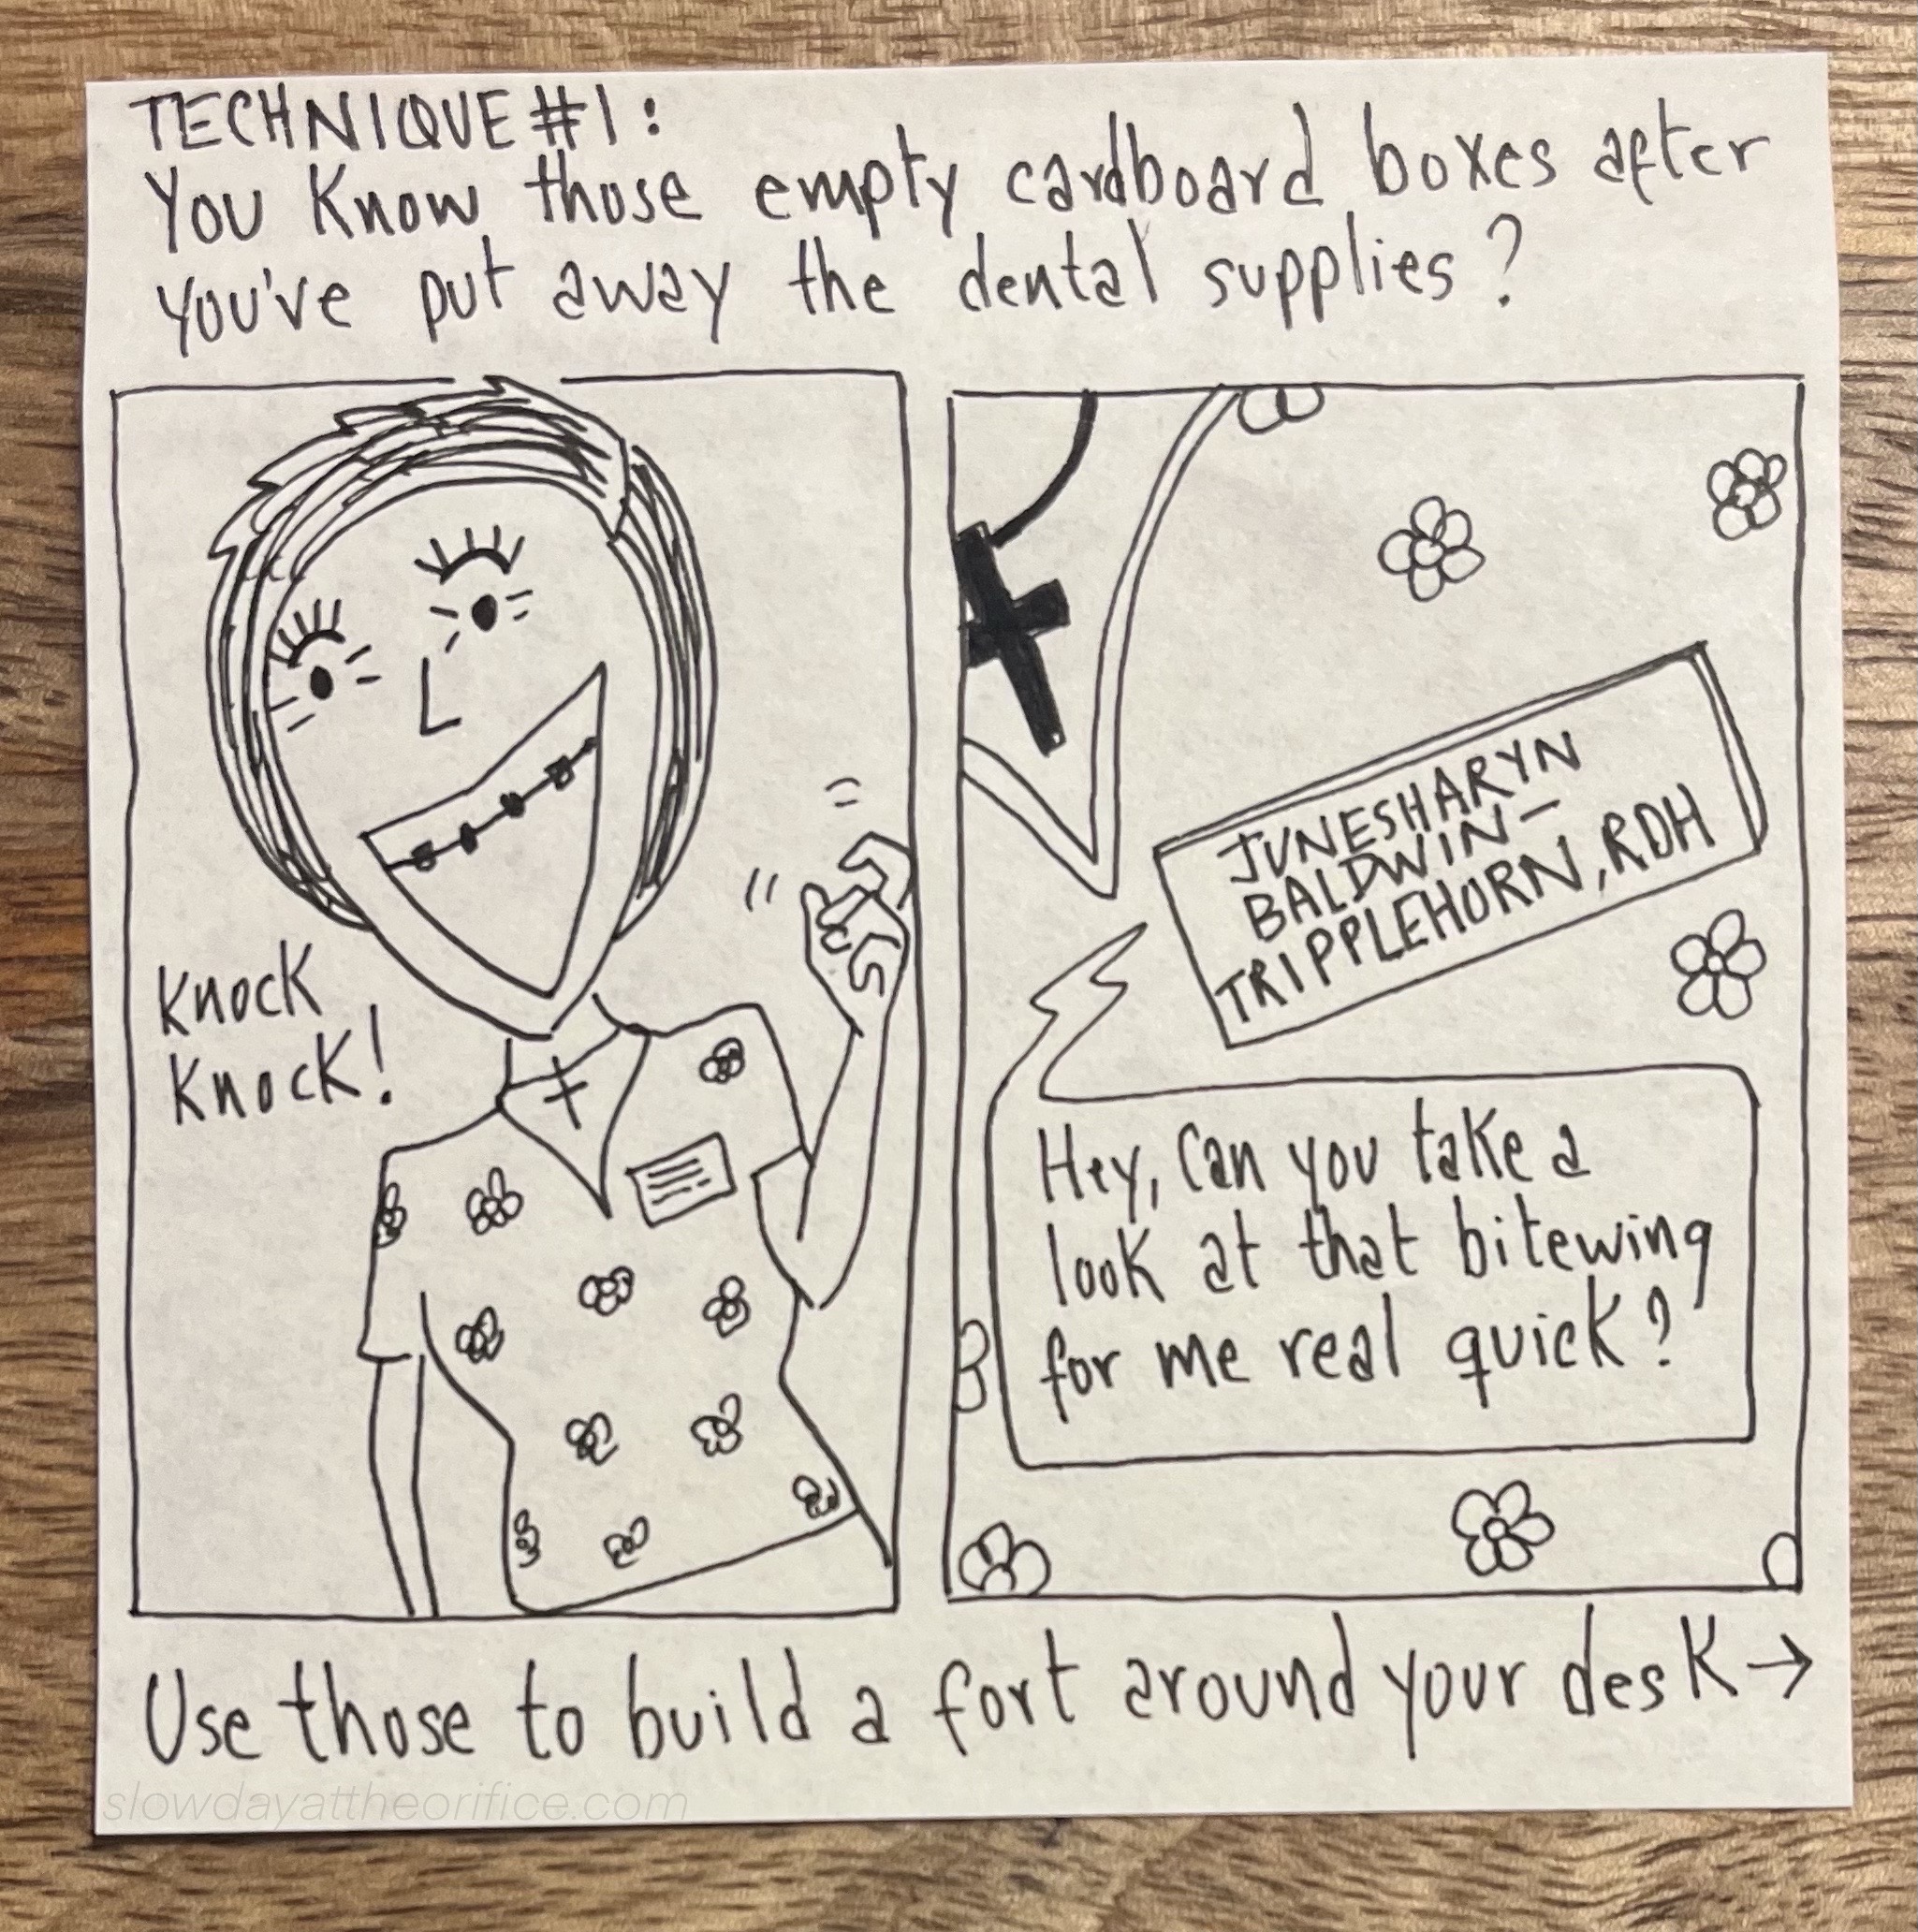 TECHNIQUE #1:
You Know those empty cardboard boxes after
you've put away the dental supplies?
Knock
Knock!
JUNESHARYN
BALDWIN-
TRIPPLEHORN, RDH
Hey, Can you take a
look at that bitewing
for me real quick?
Use those to build a fort around your desk →
slowdayattheorifice.com